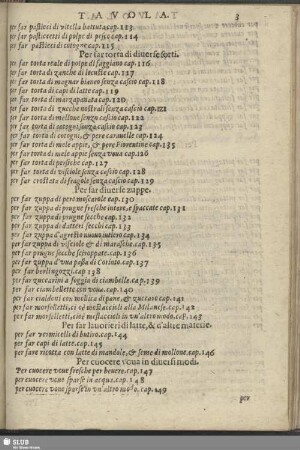 TAVOLA. 3
per far pastieri di vitella battuta cap.113
per far pasticcetti di polpe di pisce cap.114
per far pastieri di cotogne cap.115
Per far torta di diuerse sorti.
per far torta reale di polpe di faggiano cap.116
per far torta di zanche di locustie cap.117
per far torta di magnar bianco senza cascio cap.118
per far torta di capi di latte cap.119
per far torta di marzapanata cap.120
per far torta di zucche nostrali senza cascio cap.121
per far torta di mellone senza cascio cap.122
per far torta di cotogni senza cascio cap.123
per far torta di cotogni, & pere carauelle cap.124
per far torta di mele appie, & pere Fiorentine cap.125
per far torta di mele appie senza voua cap.126
per far torta di persiche cap.127
per far torta di visciole senza cascio cap.128
per far crostata di fragole senza cascio cap.129
Per far diuerse zuppe.
per far zuppa di pere moscarole cap.130
per far zuppa di prugne fresche intere, e spaccate cap.131
per far zuppa di prugne secche cap.132
per far zuppa di datteri secchi cap.133
per far zuppa d'agresto nuouo intiero cap.134
per far zuppa di visciole & di marasche cap.135
per far prugne secche sciroppate cap.136
per far zuppa d'vua passa di Corinto cap.137
per far berlingozzi cap.138
per far zuccarini a foggia di ciambelle cap.139
per far ciambellette con voua cap.140
per far cialdoni con mollica di pane, & zuccaro cap.141
per far morselletti, cioè mostaccioli alla Milanese cap.142
per far morselletti, cioè mostaccioli in vn'altro modo cap.143
Per far lauorieri di latte, & d'altre materie.
per far vermicelli di butiro cap.144
per far capi di latte cap.145
per fare ricotte con latte di mandole, & seme di mollone cap.146
Per cuocere voua in diuersi modi.
Per cuocere voue fresche per beuere cap.147
per cuocere voue sparse in acqua cap.148
per cuocere voue sparse in vn'altro modo cap.149
per
SLUB